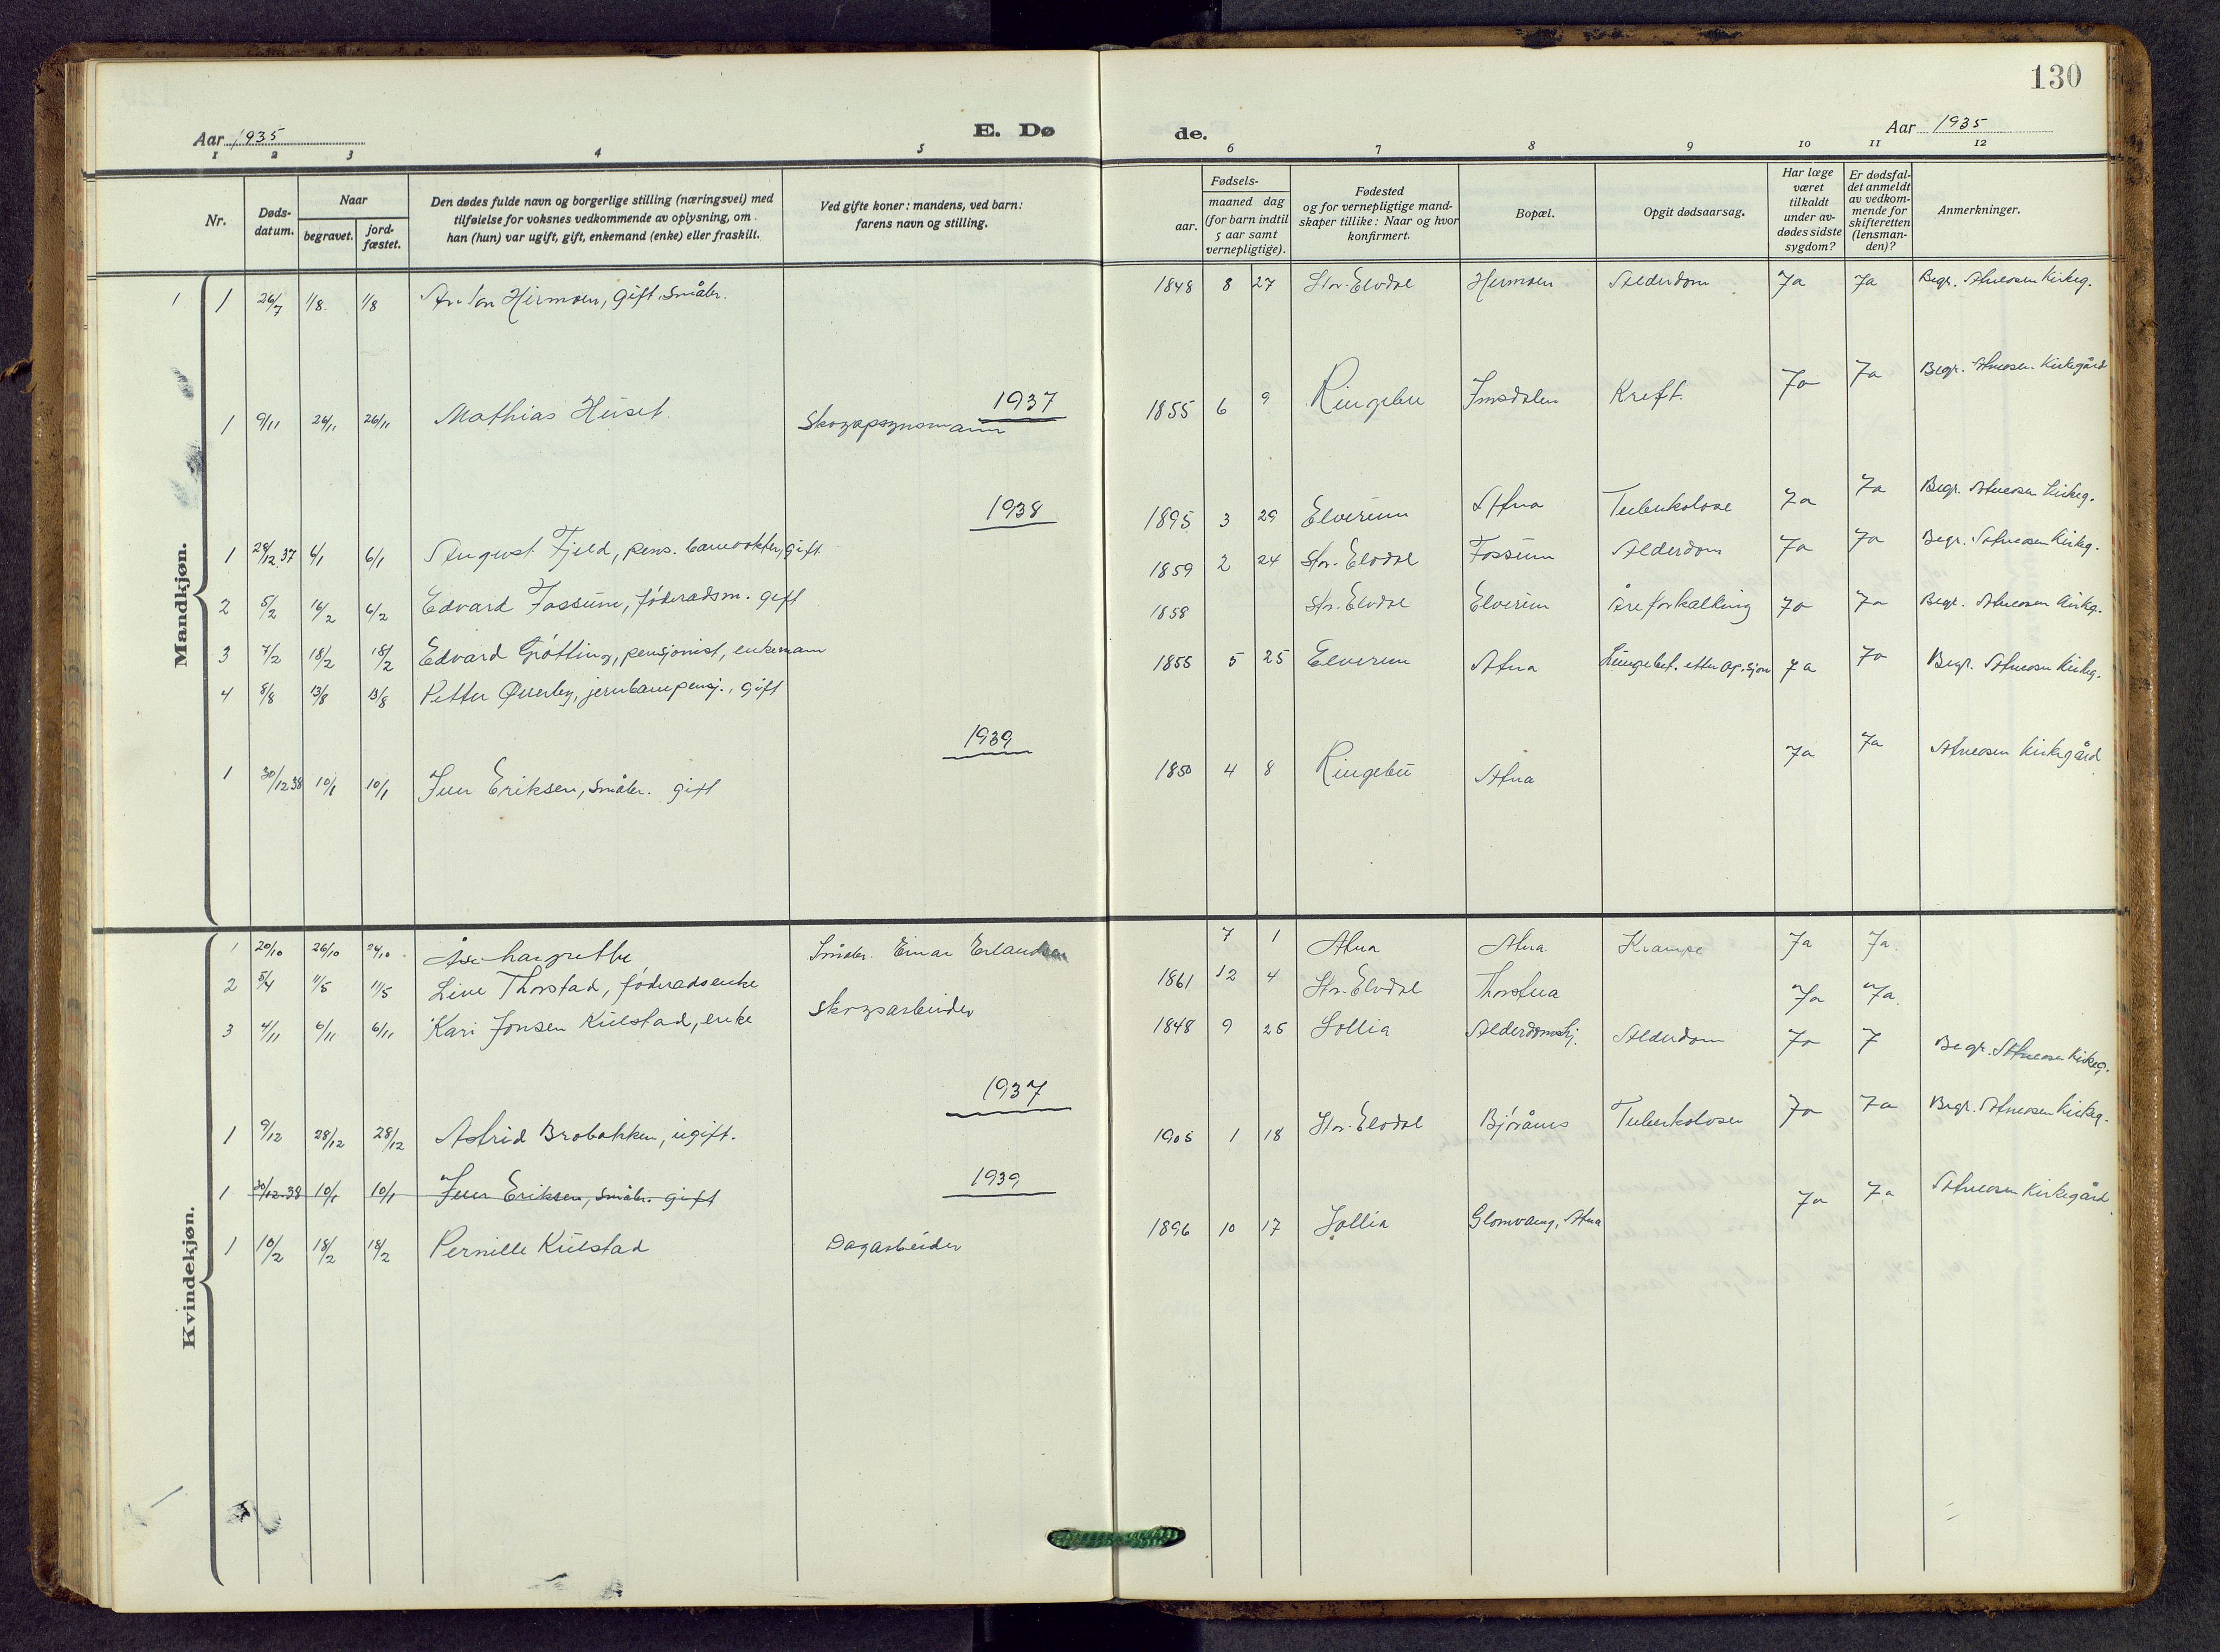 130
Aar 1935 E. Dø de. Aar 1935
1 2 3 4 5 6 7 8 9 10 11 12
Nr. Døds-datum. Naar begravet. jord-fæstet. Den dødes fulde navn og borgerlige stilling (næringsvei) med tilføielse for voksnes vedkommende av oplysning, om han (hun) var ugift, gift, enkemand (enke) eller fraskilt. Ved gifte koner: mandens, ved barn: farens navn og stilling. Fødsels- aar. maaned dag (for barn indtil 5 aar samt vernepligtige). Fødested og for vernepligtige mand-skaper tillike: Naar og hvor konfirmert. Bopæl. Opgit dødsaarsag. Har læge været tilkaldt under av-dødes sidste sygdom? Er dødsfal-det anmeldt av vedkom-mende for skifteretten (lensman-den)? Anmerkninger.
Mandkjøn.
1 1 26/7 1/8 1/8 Anton Hirmoen, gift, småbr. 1848 8 27 Stor-Elvdal Hirmoen Alderdom Ja Ja Begr. Atneosen Kirkeg.
1937
1 9/11 26/11 26/11 Mathias Huset Skogopsynsmann 1855 6 9 Ringebu Imsdalen Kreft Ja Ja Begr. Atneosen Kirkegård
1938
1 28/12 37 6/1 6/1 August Fjeld, pens. banevokter, gift 1895 3 29 Elverum Atna Tuberkolose Ja Ja Begr. Atneosen Kirkeg.
2 5/2 16/2 6/2 Edvard Fossum, føderadsm. gift 1859 2 24 Stor-Elvdal Fossum Alderdom Ja Ja Begr. Atneosen Kirkeg.
3 7/2 18/2 18/2 Edvard Grøtting, pensjonist, enkemann 1858 Stor-Elvdal Elverum Åreforkalkning Ja Ja Begr. Atneosen Kirkeg.
4 8/8 13/8 13/8 Petter Øverby, jernbanepensj., gift 1855 5 25 Elverum Atna Lungebet. etter op.sjon Ja Ja Begr. Atneosen Kirkeg.
1939
1 30/12 38 10/1 10/1 Iver Eriksen, småbr. gift 1850 4 8 Ringebu Atna Ja Ja Atneosen Kirkegård
Kvindekjøn.
1 20/10 26/10 24/10 Åse Margrethe Småbr. Einar Erlandsen 7 1 Atna Atna Krampe Ja Ja.
2 5/4 11/5 11/5 Live Thorstad, føderadsenke 1861 12 4 Stor-Elvdal Ja Ja.
3 4/11 6/11 6/11 Kari Jonsen Kulstad, enke skogsarbeider 1848 9 25 Sollia Alderdomshj. Alderdom Ja J Begr. Atneosen Kirkeg.
1937
1 9/12 28/12 28/12 Astrid Brobakken, ugift. 1905 1 18 Stor-Elvdal Bjørånes Tuberkoloser Ja Ja Begr. Atneosen Kirkeg.
1939
1 30/12.38 10/1 10/1 Iver Eriksen, småbr. gift
1 10/2 18/2 18/2 Pernille Kulstad Dagarbeider 1896 10 17 Sollia Glomvang, Atna Ja Ja Atneosen Kirkegård